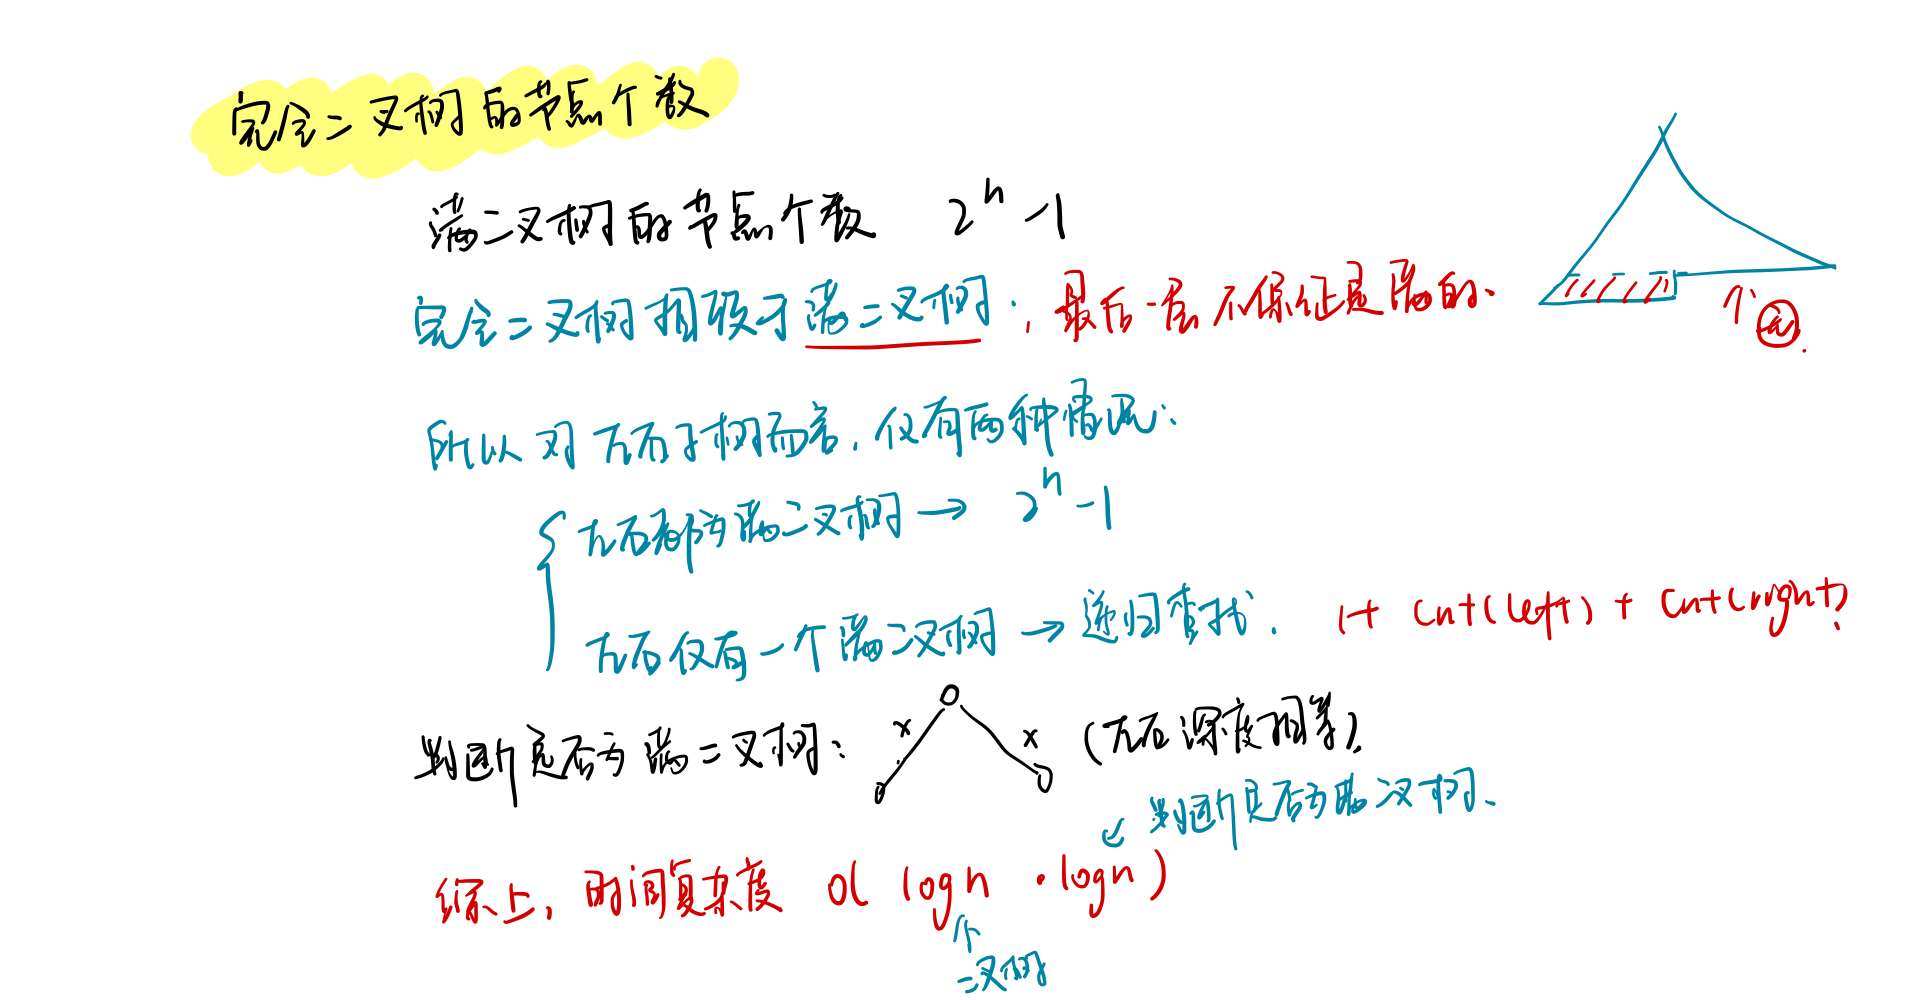 完全二叉树的节点个数
满二叉树的节点个数 2^h -1
完全二叉树相较于满二叉树, 最后一层不保证是满的.
个 无.
所以对左右子树而言, 仅有两种情况:
左右都为满二叉树 → 2^h -1
左右仅有一个满二叉树 → 递归查找. 1+ cnt(left) + cnt(right)
判断是否为满二叉树: x x (左右深度相等).
判断是否为满二叉树.
综上, 时间复杂度 O( logn · logn )
二叉树